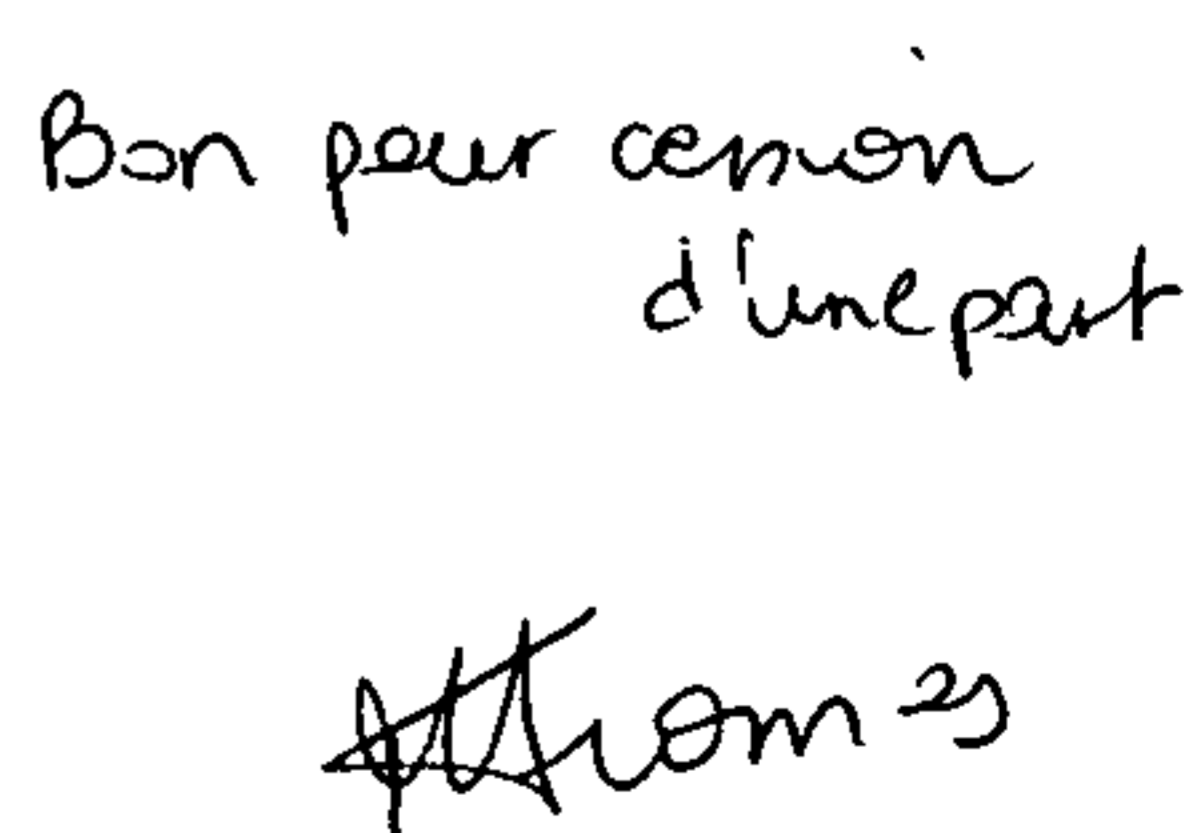 Bon pour cession
d'une part